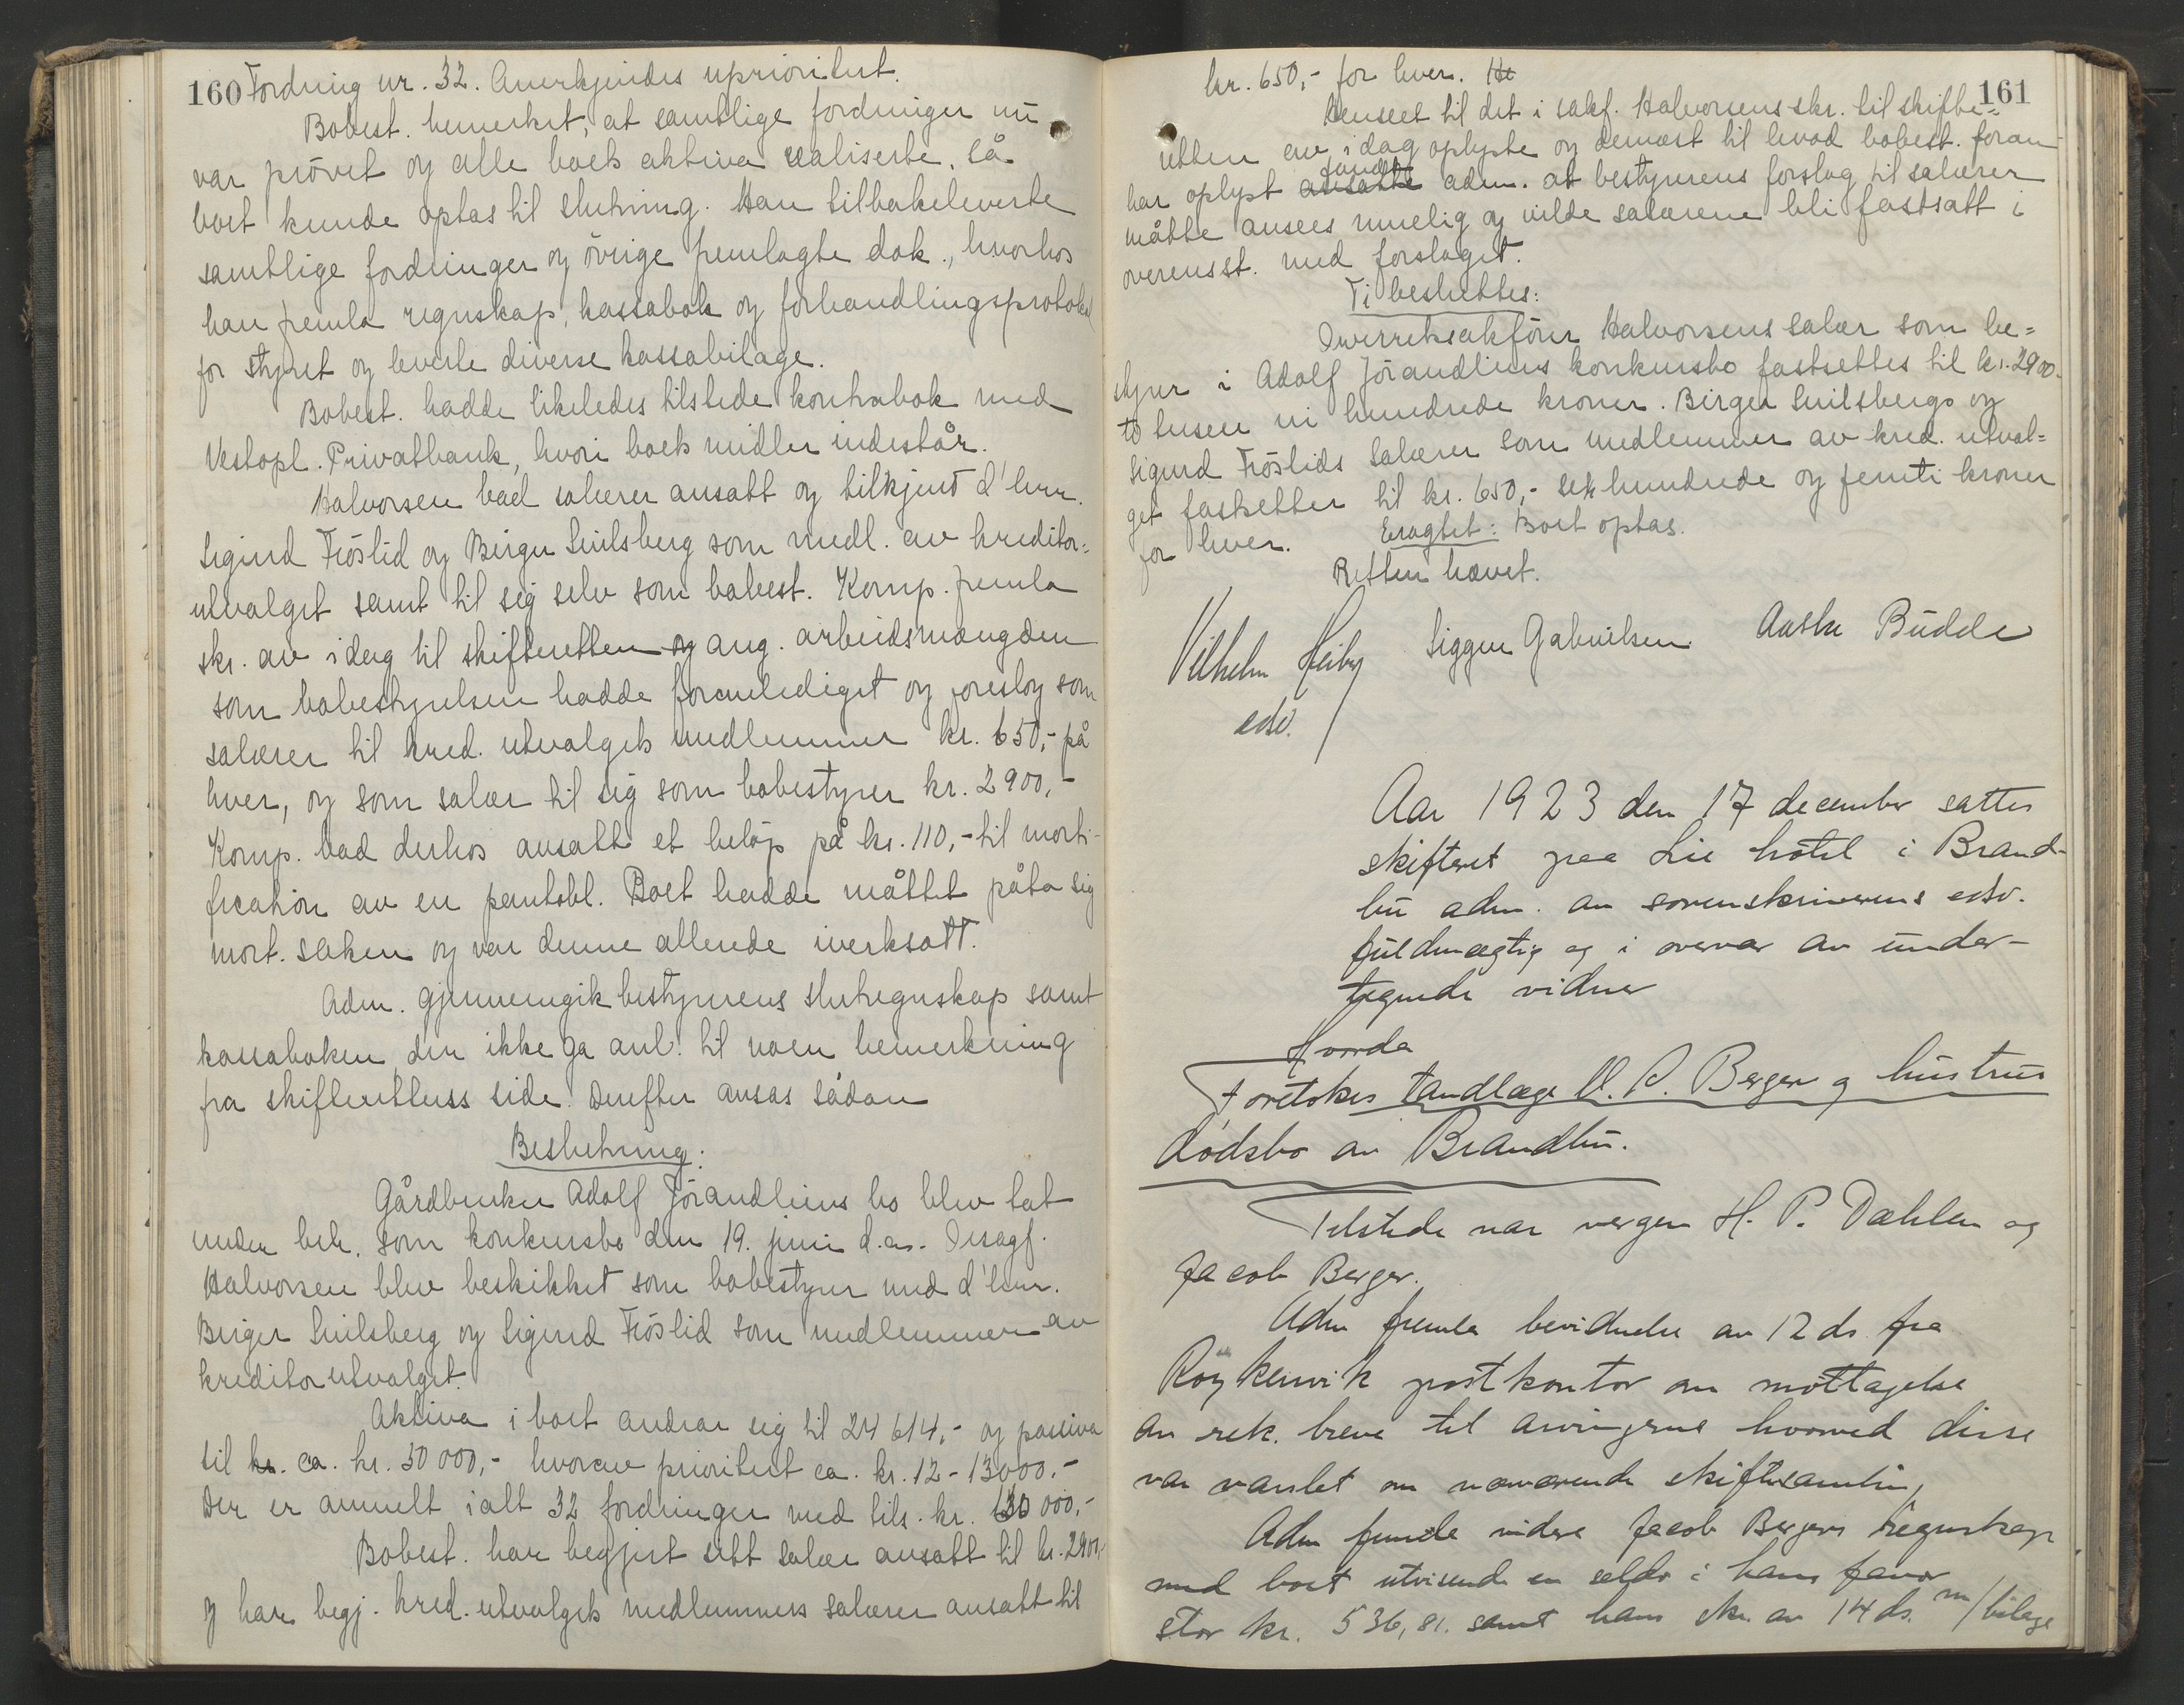 160 Fordring nr. 32. Anerkjendes uprioritert.
Bobest. bemerket, at samtlige fordringer nu
var prövet og alle boets aktiva realiserte, så
boet kunde optas til slutning. Han tilbakeleverte
samtlige fordringer og övrige fremlagte dok., hvorhos
han fremla regnskap, kassabok og forhandlingsprotokol
for styret og leverte diverse kassabilage.
Bobest. hadde likeledes tilstede kontrabok med
Vestopl. Privatbank, hvori boets midler indestår.
Halvorsen bad salærer ansatt og tilkjent d'hrr.
Sigurd Fröslid og Birger Smilsberg som medl. av kreditor=
utvalget samt til sig selv som bobest. Komp. fremla
skr. av idag til skifteretten og ang. arbeidsmængden
som bobestyrelsen hadde foranlediget og foreslog som
salærer til kred. utvalgets medlemmer kr. 650,- på
hver, og som salær til sig som bobestyrer kr. 2900,-
Komp. bad derhos ansatt et belöp på kr. 110,- til morti-
fication av en pantobl. Boet hadde måttet påta sig
mort. saken og var denne allerede iverksatt.
Adm. gjennemgik bestyrerens sluttregnskap samt
kassaboken, der ikke ga anl. til noen bemerkning
fra skifterettens side. Derefter ansas sådan
Beslutning:
Gårdbruker Adolf Jörandliens bo blev tat
under beh. som konkursbo den 19. juni d.a. Orsagf.
Halvorsen blev beskikket som bobestyrer med d'hrr.
Birger Smilsberg og Sigurd Fröslid som medlemmer av
kreditorutvalget.
Aktiva i boet andrar sig til 24 614,- og passiva
til kr. ca. kr. 50 000,- hvorav prioritert ca. kr. 12-13000,-
Der er anmelt ialt 32 fordringer med tils. kr. 000,-
Bobest. har begjært sitt salær ansatt til kr. 2900,-
og har begj. kred. utvalgets medlemmers salærer ansatt til
161
kr. 650,- for hver. He
Henseet til det i sakf. Halvorsens skr. til skifte=
retten av idag oplyste og dernæst til hvad bobest. foran
har oplyst ansatte fandt adm. at bestyrerens forslag til salærer
måtte ansees rimelig og vilde salærene bli fastsatt i
overensst. med forslaget.
Ti besluttes:
Overretssakförer Halvorsens salær som be=
styrer i Adolf Jörandliens konkursbo fastsettes til kr. 2900-
to tusen ni hundrede kroner. Birger Smilsbergs og
Sigurd Fröslids salærer som medlemmer av kred. utval=
get fastsettes til kr. 650,- seks hundrede og femti kroner
for hver.
Eragtet: Boet optas.
Retten hævet.
Vilhelm Heiby Siggen Gabrielsen Aasta Budde
edsv.
Aar 1923 den 17 december sattes
skifteret paa Lie hotel i Brand-
bu adm. av sorenskriverens edsv.
fuldmægtig og i overvær av under-
tegnede vidner
Hvorda
Foretokes tandlæge O. P. Berger og hustrus
dödsbo av Brandbu.
Tilstede var vergen H. P. Dæhlen og
Jacob Berger.
Adm fremla bevidnelse av 12 ds fra
Röykenvik postkontor om mottagelse
av rek. breve til arvingerne hvorved disse
var varslet om nærværende skiftesamling
Adm fremla videre Jacob Bergers regnskap
med boet utvisende en saldo i hans favør
stor kr. 536,81. samt hans skr. av 14 ds. m/bilage